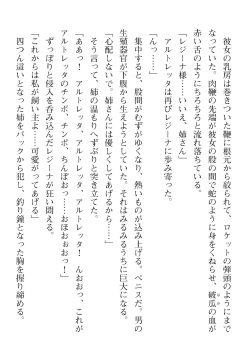 彼女の乳房は巻きついた鞭に根元から絞られて、ロケットの弾頭のようにまで
なっていた。肉鞭の先端が彼女の股の間で蛇のように身をくねらせ、破瓜の血が
赤い舌のようにちろちろと流れ落ちている。
「レジーナ様……いいえ、姉さん」
アルトレッタは再びレジーナに歩み寄った。
「んっ……」
集中すると、股間がむずがゆくなり、熱いものが込み上げる。ペニスだ。男の
生殖器官が下腹から生えようとしている。それはみるみるうちに巨大になる。
「心配しないで。姉さんには優しくしてあげるから……」
そう言って、姉の温もりへずぶりと突き立てた。
「ああっ! アルトレッタ、アルトレッタ、アルトレッタ! んおおっ、これが
アルトレッタのチンポ、チンポ、ちんぽおっ……おほおぉおっ!」
ずっぽりと侵入を呑み込んだレジーナが狂い悶える。
「これからは私が飼い主よ……可愛がってあげる」
四つん這いとなった姉をバックから犯し、釣り鐘となった胸を握り締める。